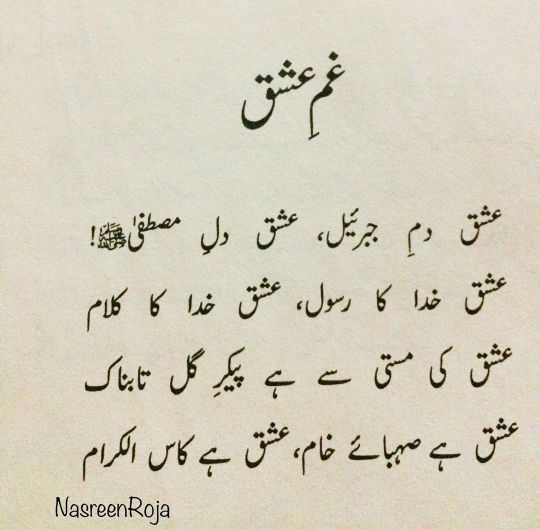 غمِ عشق
عشق دمِ جبرئیل، عشق دلِ مصطفیٰﷺ!
عشق خدا کا رسول، عشق خدا کا کلام
عشق کی مستی سے ہے پیکرِ گل تابناک
عشق ہے صہبائے خام، عشق ہے کاس الکرام
NasreenRoja